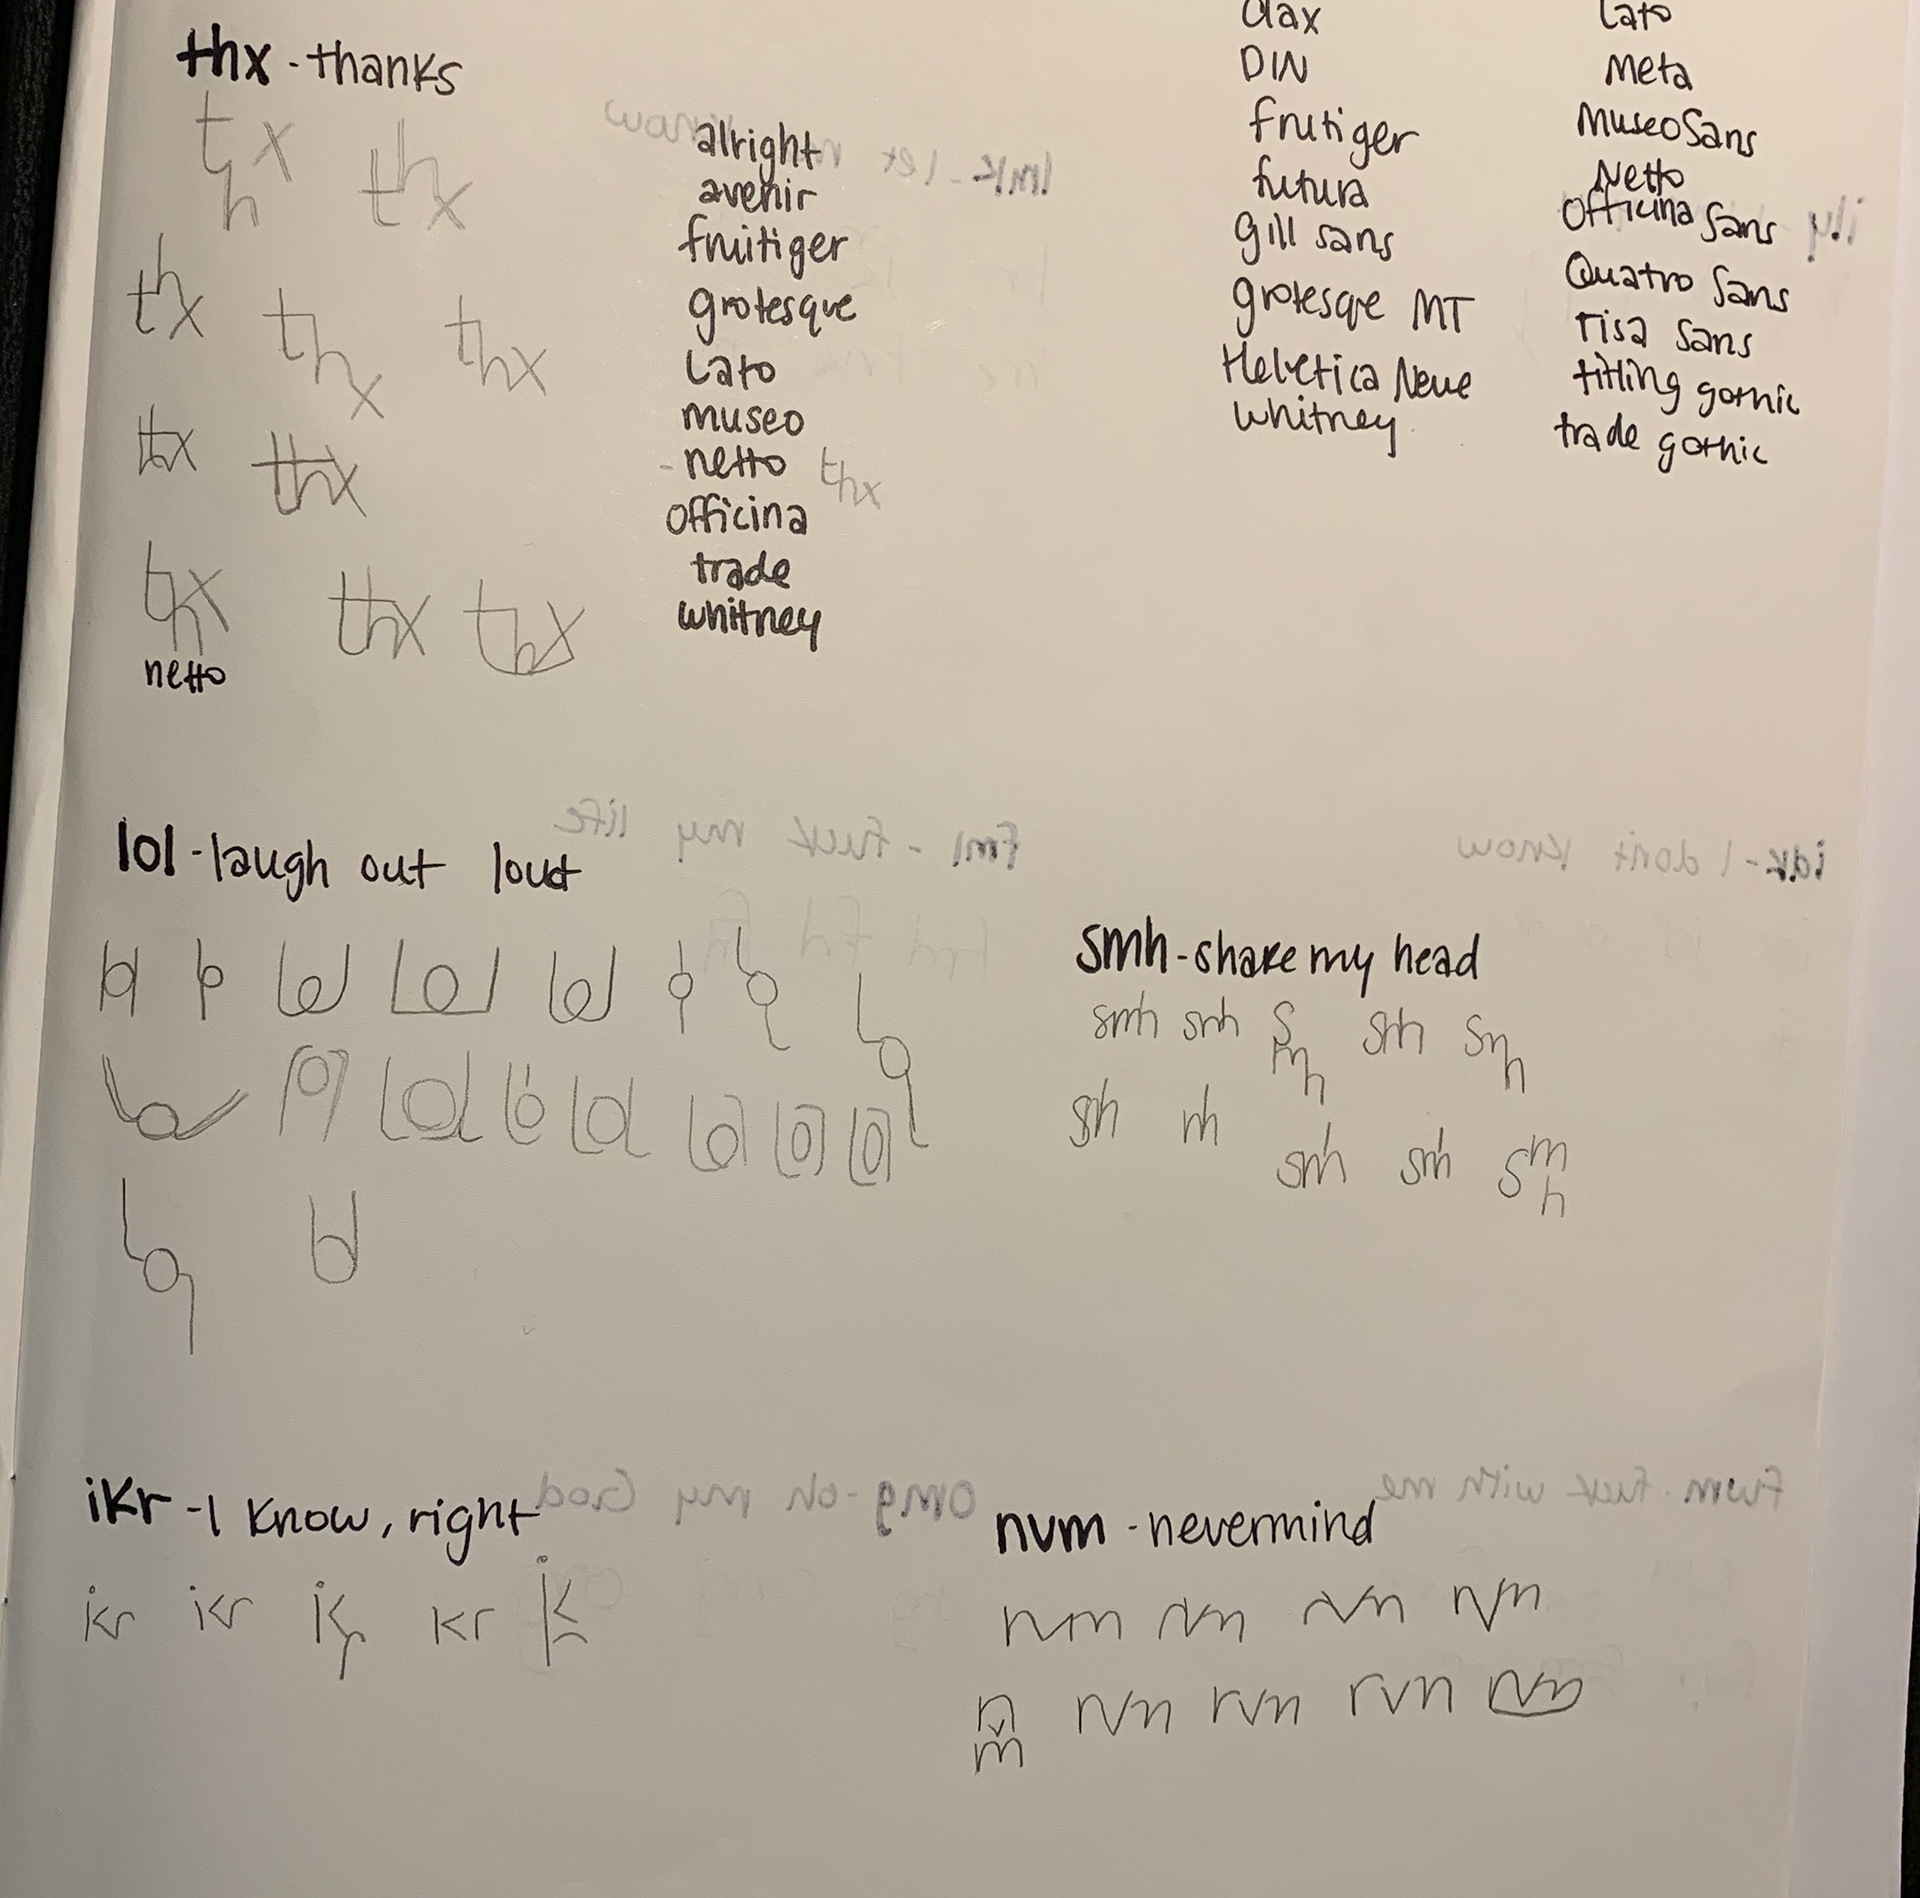 thx - thanks
t x
h
thx
thx
thx
thx
thx
thx
thx
thx
thx
netto
alright
avenir
fruitiger
grotesque
Lato
museo
- netto thx
officina
trade
whitney
Dax
DIN
frutiger
futura
gill sans
grotesque MT
Helvetica Neue
whitney
Lato
Meta
Museo Sans
Netto
Officina Sans
Quatro Sans
risa sans
titling gothic
trade gothic
lmk - let me know
ily
lol - laugh out loud
fml - fuck my life
idk - I dont know
smh - shake my head
smh smh smh smh smh
smh
smh smh smh
ikr - I know, right
omg - oh my God
ikr ikr ikr kr ikr
nvm - nevermind
fwm - fuck with me
nvm nvm nvm nvm
nvm nvm nvm nvm nvm